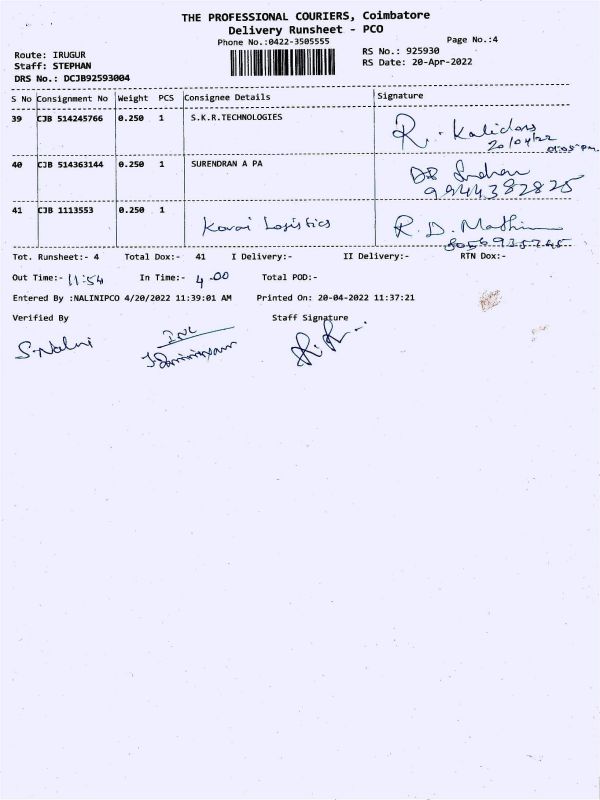 THE PROFESSIONAL COURIERS, Coimbatore
Delivery Runsheet - PCO
Phone No.:0422-3505555
Page No.:4
Route: IRUGUR
RS No.: 925930
Staff: STEPHAN
RS Date: 20-Apr-2022
DRS No.: DCJB92593004
S No Consignment No Weight PCS Consignee Details Signature
39 CJB 514245766 0.250 1 S.K.R.TECHNOLOGIES R. Kalidass
20/04/22
40 CJB 514363144 0.250 1 SURENDRAN A PA
9944382825
41 CJB 1113553 0.250 1 Kovai Logistics R. D. Mathi
Tot. Runsheet:- 4 Total Dox:- 41 I Delivery:- II Delivery:- RTN Dox:-
Out Time:- 11:54 In Time:- 4.00 Total POD:-
Entered By :NALINIPCO 4/20/2022 11:39:01 AM Printed On: 20-04-2022 11:37:21
Verified By Staff Signature
S.Nalini